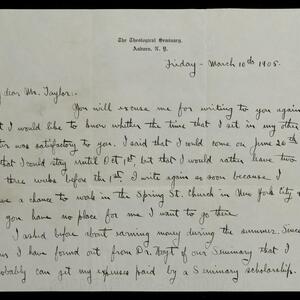 The Theological Seminary,
Auburn, N. Y.
Friday - March 10th 1905.
dear Mr. Taylor:-
You will excuse me for writing to you again
I would like to know whether the time that I set in my other
was satisfactory to you. I said that I could come on June 20th
that I could stay until Oct 1st, but that I would rather leave two
three weeks before the 1st. I write again so soon because I
a chance to work in the Spring St. Church in New York City
you have no place for me I want to go there.
I asked before about earning money during the summer. Since
I have found out from Dr. Hoyt of our Seminary that I
probably can get my expenses paid by a Seminary scholarship.